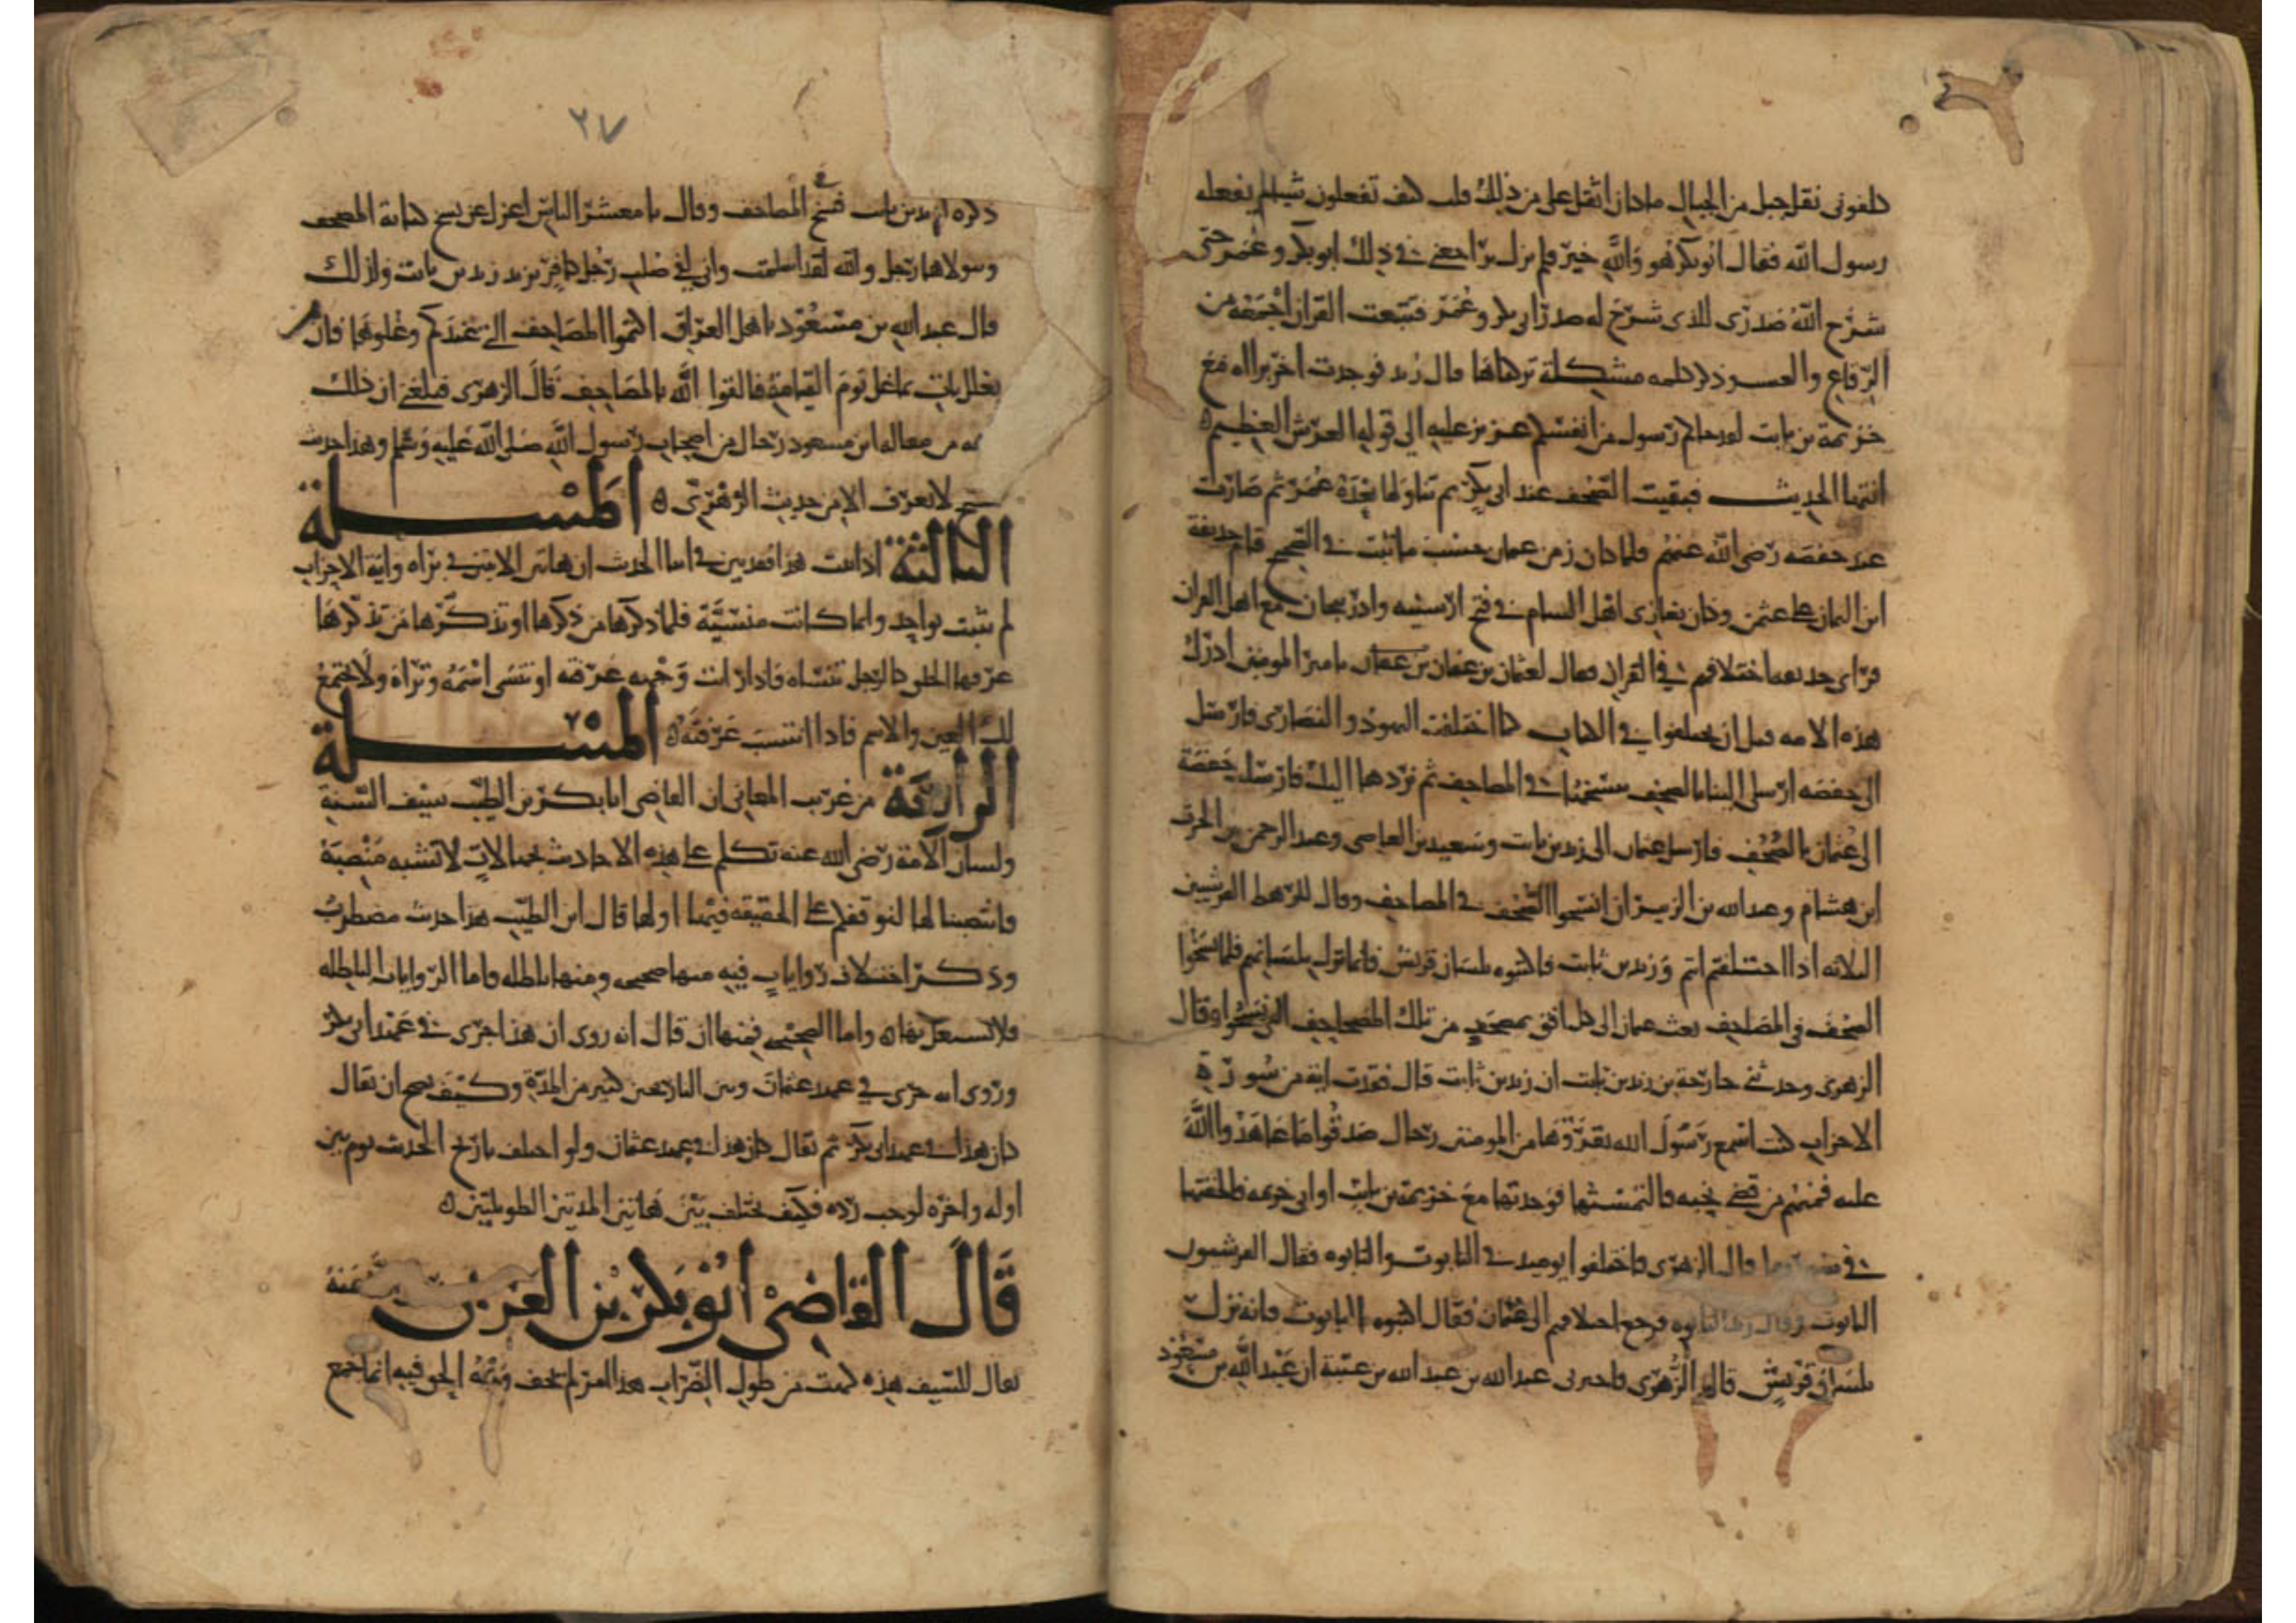 كلفوني نقل جبل من الجبال ما كان اثقل علي من ذلك قلت كيف تفعلون شيا لم يفعله
رسول الله فقال ابو بكر هو والله خير فلم يزل يراجعني في ذلك ابو بكر وعمر حتى
شرح الله صدري للذي شرح له صدر ابي بكر وعمر فتتبعت القران اجمعه من
الرقاع والعسب وذكر كلمه مشكلة تركناها قال زيد فوجدت اخر براه مع
خزيمة بن ثابت لقد جاكم رسول من انفسكم عزيز عليه الى قوله العرش العظيم
انتهى الحديث فبقيت الصحف عند ابي بكر ثم تناولها بعده عمر ثم صارت
عند حفصه رضي الله عنهم فلما كان زمن عثمان حسب ما ثبت في الصحيح قدم حذيفة
ابن اليمان على عثمن وكان يغازي اهل الشام في فتح ارمينيه واذربيجان مع اهل العراق
فراى حذيفة اختلافهم في القران فقال لعثمان بن عفان بن عفان يامير المومنين ادرك
هذه الامه قبل ان يختلفوا في الكتاب كما اختلفت اليهود والنصارى فارسل
الى حفصه ارسلي الينا بالصحف ننسخها في المصاحف ثم نردها اليك فارسلت حفصة
الى عثمان بالصحف فارسل عثمان الى زيد بن ثابت وسعيد بن العاصي وعبد الرحمن بن الحرث
ابن هشام وعبد الله بن الزبير ان انسخوا الصحف في المصاحف وقال للرهط القرشيين
الثلاثه اذا اختلفتم انتم وزيد بن ثابت فاكتبوه بلسان قريش فانما نزل بلسانهم فلما نسخوا
الصحف في المصاحف بعث عثمان الى كل افق بمصحف من تلك المصاحف التي نسخوا وقال
الزهري وحدثني خارجة بن زيد بن ثابت ان زيد بن ثابت قال فقدت اية من سورة
الاحزاب كنت اسمع رسول الله يقروها من المومنين رجال صدقوا ما عاهدوا الله
عليه فمنهم من قضى نحبه فالتمستها فوجدتها مع خزيمة بن ثابت او ابي خزيمه فالحقتها
في سورتها قال الزهري فاختلفوا يوميذ في التابوت والتابوه فقال القرشيون
التابوت وقال زيد التابوه فرجع اختلافهم الى عثمان فقال اكتبوه التابوت فانه نزل
بلسان قريش قال الزهري فاخبرني عبد الله بن عبد الله بن عتبة ان عبد الله بن مسعود
٢٧
ذكره لزيد بن ثابت نسخ المصاحف وقال يا معشر الناس اعزل عن نسخ كتابة المصحف
ويتولاها رجل والله لقد اسلمت واني لفي صلب رجل كافر يريد زيد بن ثابت ولذلك
قال عبد الله بن مسعود ياهل العراق اكتموا المصاحف التي عندكم وغلوها فان من
يغلل يات بما غل يوم القيامة فالقوا الله بالمصاحف قال الزهري فبلغني ان ذلك
من مقاله ابن مسعود رجال من اصحاب رسول الله صلى الله عليه وسلم وهذا حديث
صحيح لا يعرف الا من حديث الزهري المسلة
الثالثة اذا ثبت هذا فقد تبين في اثنا الحديث ان هاتين الايتين في براه واية الاحزاب
لم تثبت بواحد وانما كانت منسية فلما ذكرها من ذكرها او تذكرها من تذكرها
عرفها الخلق كالرجل تنساه فاذا رايت وجهه عرفته او تنسى اسمه وتراه ولا يجتمع
لك العين والاسم فاذا انتسب عرفته المسلة
الرابعة من غريب المعاني ان القاضي ابا بكر بن الطيب سيف السنة
ولسان الامة رضي الله عنه تكلم على هذه الاحاديث بجهالات لا تشبه منصبة
فانتصبنا لها لنوقفكم على الحقيقه فيها اولها قال ابن الطيب هذا حديث مضطرب
وذكر اختلاف روايات فيه منها صحيحه ومنها باطله فاما الروايات الباطله
فلا نشتغل بها واما الصحيحه فمنها ان قال انه روى ان هذا جرى في عهد ابي بكر
وروى انه جرى في عهد عثمان وبين التاريخين كثير من المدة وكيف يصح ان نقال
كان هذا في عهد ابي بكر ثم نقال كان هذا في عهد عثمان ولو اختلف تاريخ الحديث يوم بين
اوله واخره لوجب رده فكيف يختلف بين هاتين المدتين الطويلتين
قال القاضي ابو بكر بن العربي رضي الله عنه
يقال للسيف هذه كهمت من طول الضراب هذا امر لم يخف وجه الحق فيه انما جمع